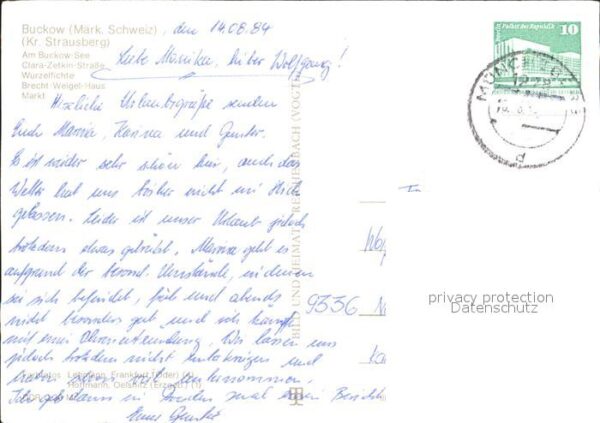 Buckow (Märk. Schweiz), den 14.08.84
(Kr. Strausberg)
Am Buckow-See
Clara-Zetkin-Straße
Wurzelfichte
Brecht-Weigel-Haus
Markt
Liebe Monika, lieber Wolfgang!
Herzliche Urlaubsgrüße senden
Euch Marina, und Gunter.
Es ist wieder sehr schön hier, auch das
Wetter hat uns bisher nicht im Stich
gelassen. Leider ist unser Urlaub jedoch
trotzdem etwas getrübt. Marina geht es
aufgrund der besond. Umstände, in denen
sie sich befindet, früh und abends
nicht besonders gut und ich kämpfe
mit einer Ohrenentzündung. Wir lassen uns
jedoch trotzdem nicht unterkriegen und
haben schon viel unternommen.
Ich geb dann in mal einen Bericht.
Euer Gunter
Fotos Lehmann, Frankfurt (Oder) (4)
Hoffmann, Oelsnitz (Erzgeb.) (1)
BILD UND HEIMAT REICHENBACH (VOGTL)
Palast der Republik 10
MÜNCHEBERG
9336
privacy protection
Datenschutz